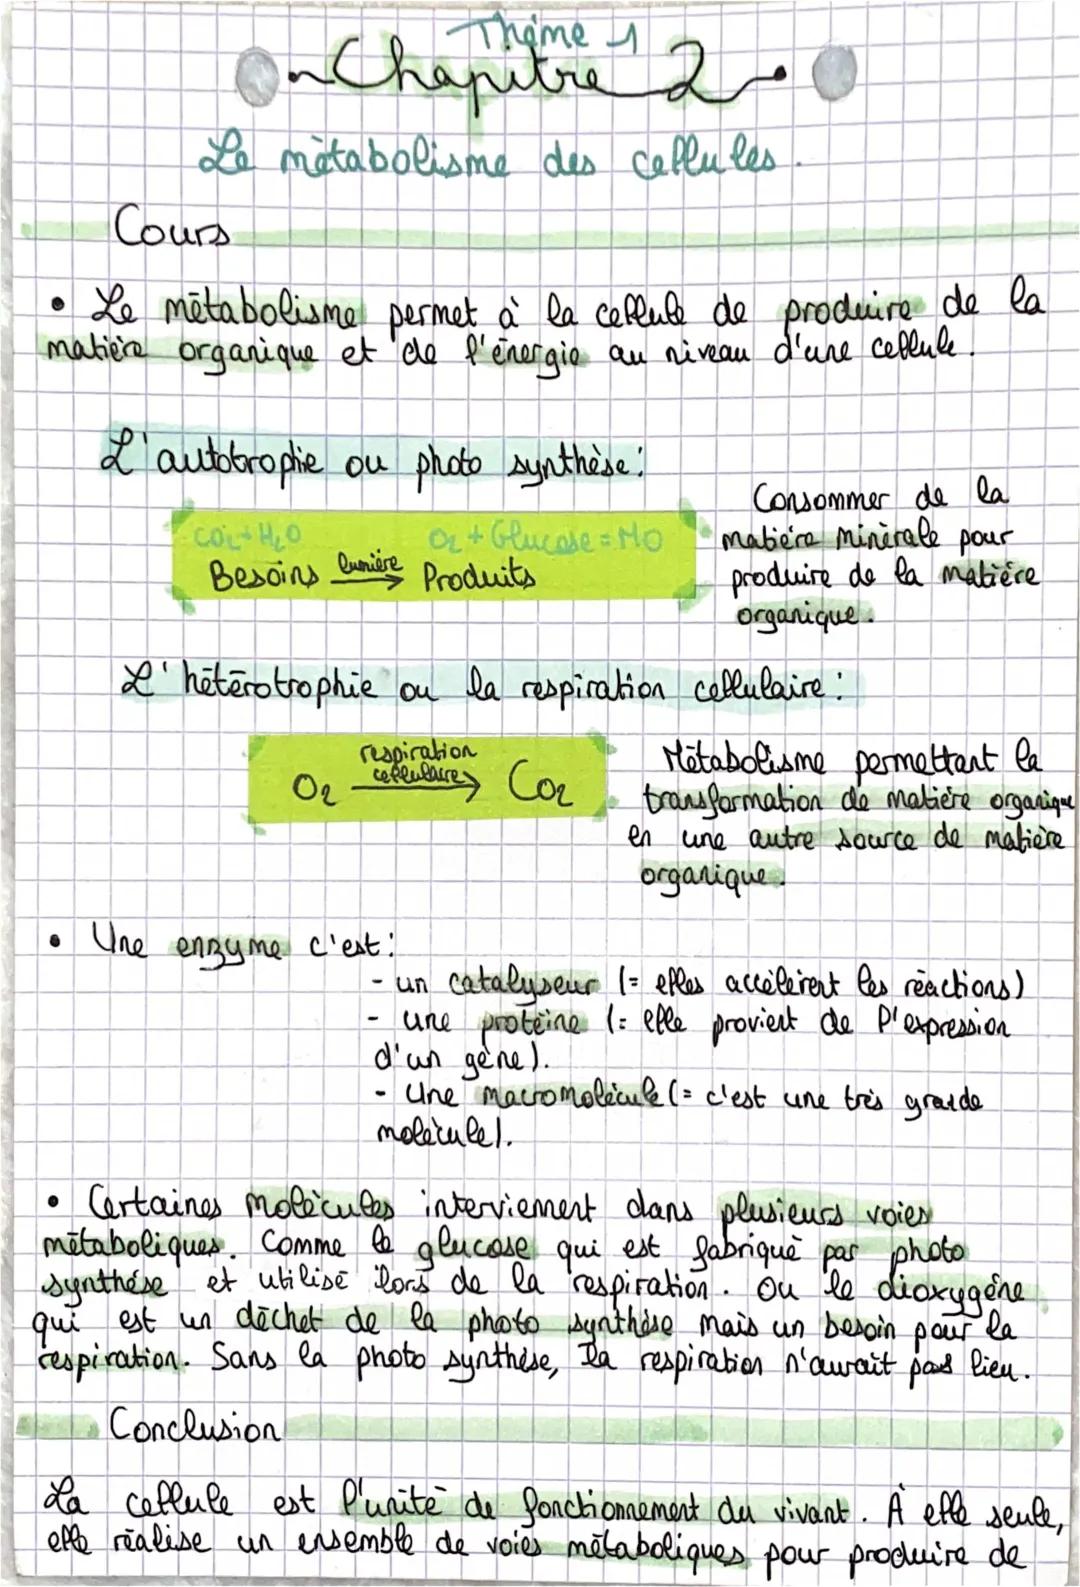 Thème 1
Chapitre 2
Le métabolisme des cellules.
Cours
• Le métabolisme permet à la cellule de produire de la
matière organique et de l'énergie au niveau d'une cellule.
L'autotrophie ou photo synthèse:
CO2+H2O O2+Glucose=MO
Besoins lumière Produits
Consommer de la
matière minérale pour
produire de la matière
organique.
L'hétérotrophie ou la respiration cellulaire:
respiration
cellulaire
O2 → CO2
Métabolisme permettant la
transformation de matière organique
en une autre source de matière
organique.
• Une enzyme c'est:
- un catalyseur (= elles accélèrent les réactions)
- une protéine (= elle provient de l'expression
d'un gène).
- Une macromolécule (= c'est une très grande
molécule).
• Certaines molécules interviennent dans plusieurs voies
métaboliques. Comme le glucose qui est fabriqué par photo
synthèse et utilisé lors de la respiration. Ou le dioxygène
qui est un déchet de la photo synthèse mais un besoin pour la
respiration. Sans la photo synthèse, la respiration n'aurait pas lieu.
Conclusion
La cellule est l'unité de fonctionnement du vivant. À elle seule,
elle réalise un ensemble de voies métaboliques pour produire de